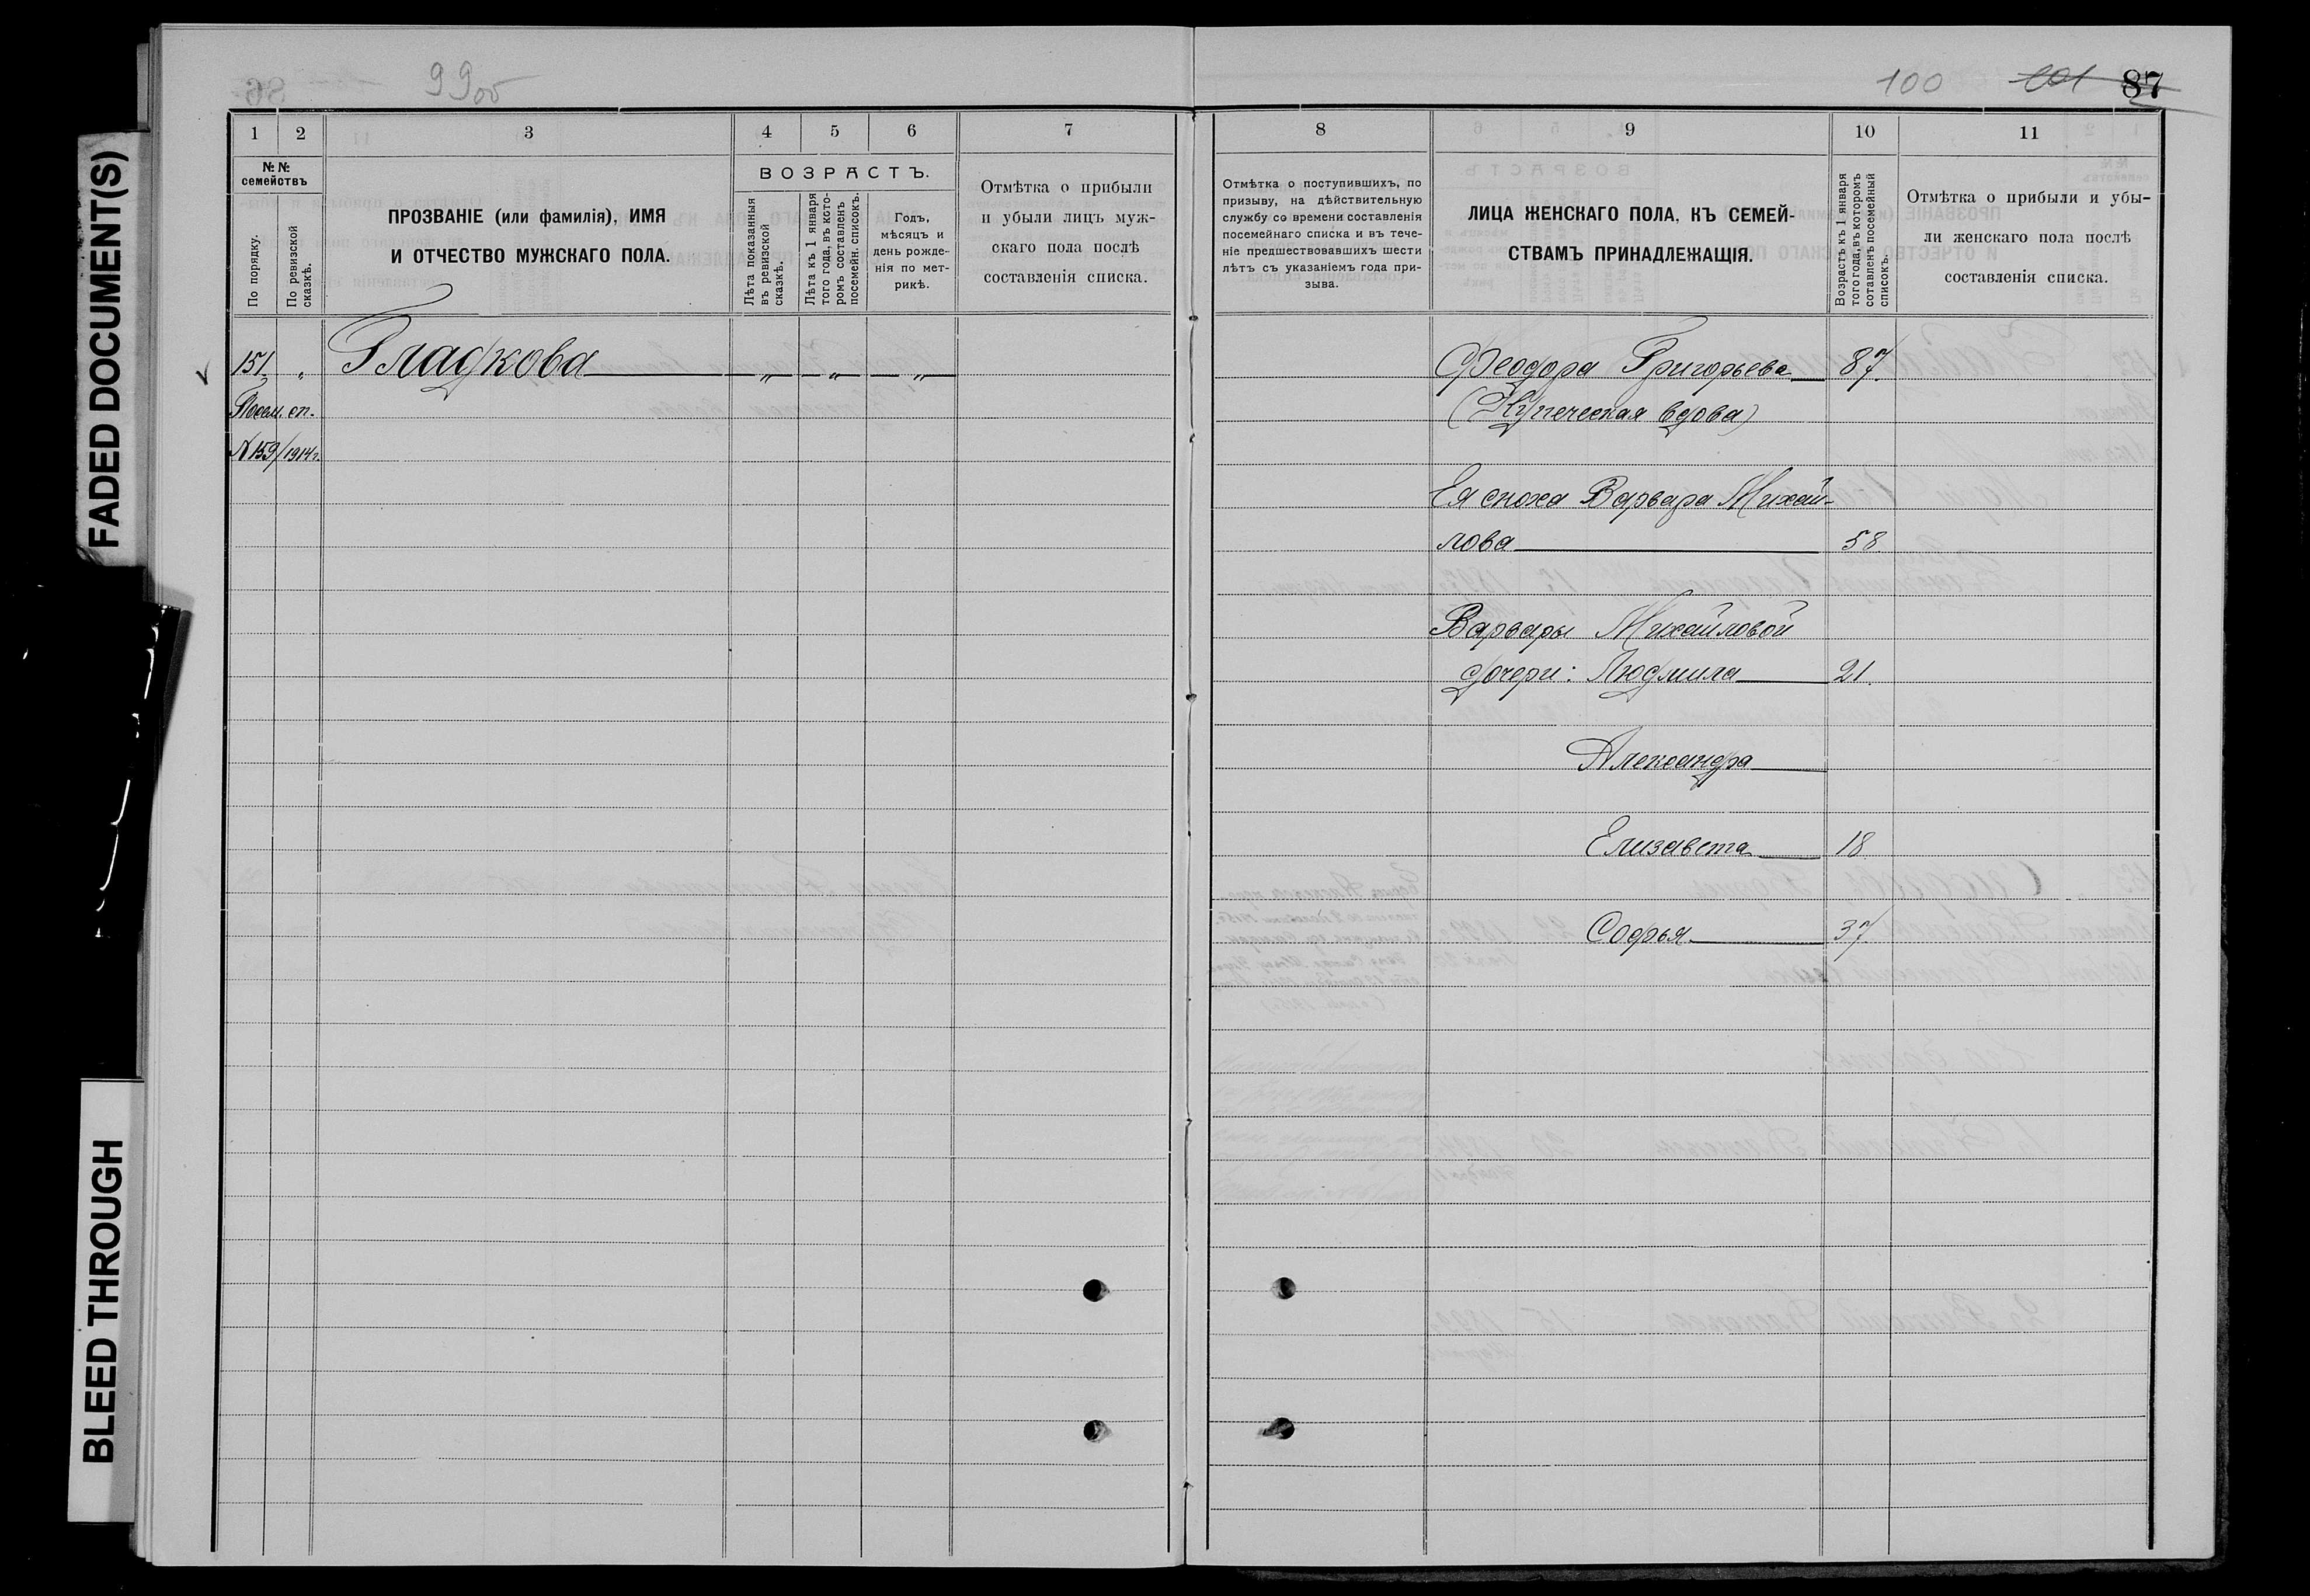 FADED DOCUMENT(S)
BLEED THROUGH
99об
1 2 3 4 5 6 7
№№ семействъ
По порядку.
По ревизской сказкѣ.
ПРОЗВАНІЕ (или фамилія), ИМЯ
И ОТЧЕСТВО МУЖСКАГО ПОЛА.
ВОЗРАСТЪ.
Лѣта показанныя въ ревизской сказкѣ.
Лѣта къ 1 января того года, въ кото-ромъ составленъ посемейн. списокъ.
Годъ,
мѣсяцъ и
день рожде-
нія по мет-
рикѣ.
Отмѣтка о прибыли
и убыли лицъ муж-
скаго пола послѣ
составленія списка.
151. „ Гладкова „ „ „
Посем. сп.
№ 159/1914г.
100 101 87
8 9 10 11
Отмѣтка о поступившихъ, по
призыву, на дѣйствительную
службу со времени составленія
посемейнаго списка и въ тече-
ніе предшествовавшихъ шести
лѣтъ съ указаніемъ года при-
зыва.
ЛИЦА ЖЕНСКАГО ПОЛА, КЪ СЕМЕЙ-
СТВАМЪ ПРИНАДЛЕЖАЩІЯ.
Возрастъ къ 1 января
того года, въ которомъ
сотавленъ посемейный
списокъ.
Отмѣтка о прибыли и убы-
ли женскаго пола послѣ
составленія списка.
Феодора Григорьева 87.
(Купеческая вдова)
Ея сноха Варвара Михай-
лова 58
Варвары Михайловой
дочери: Людмила 21.
Александра
Елизавета 18
Софья 37